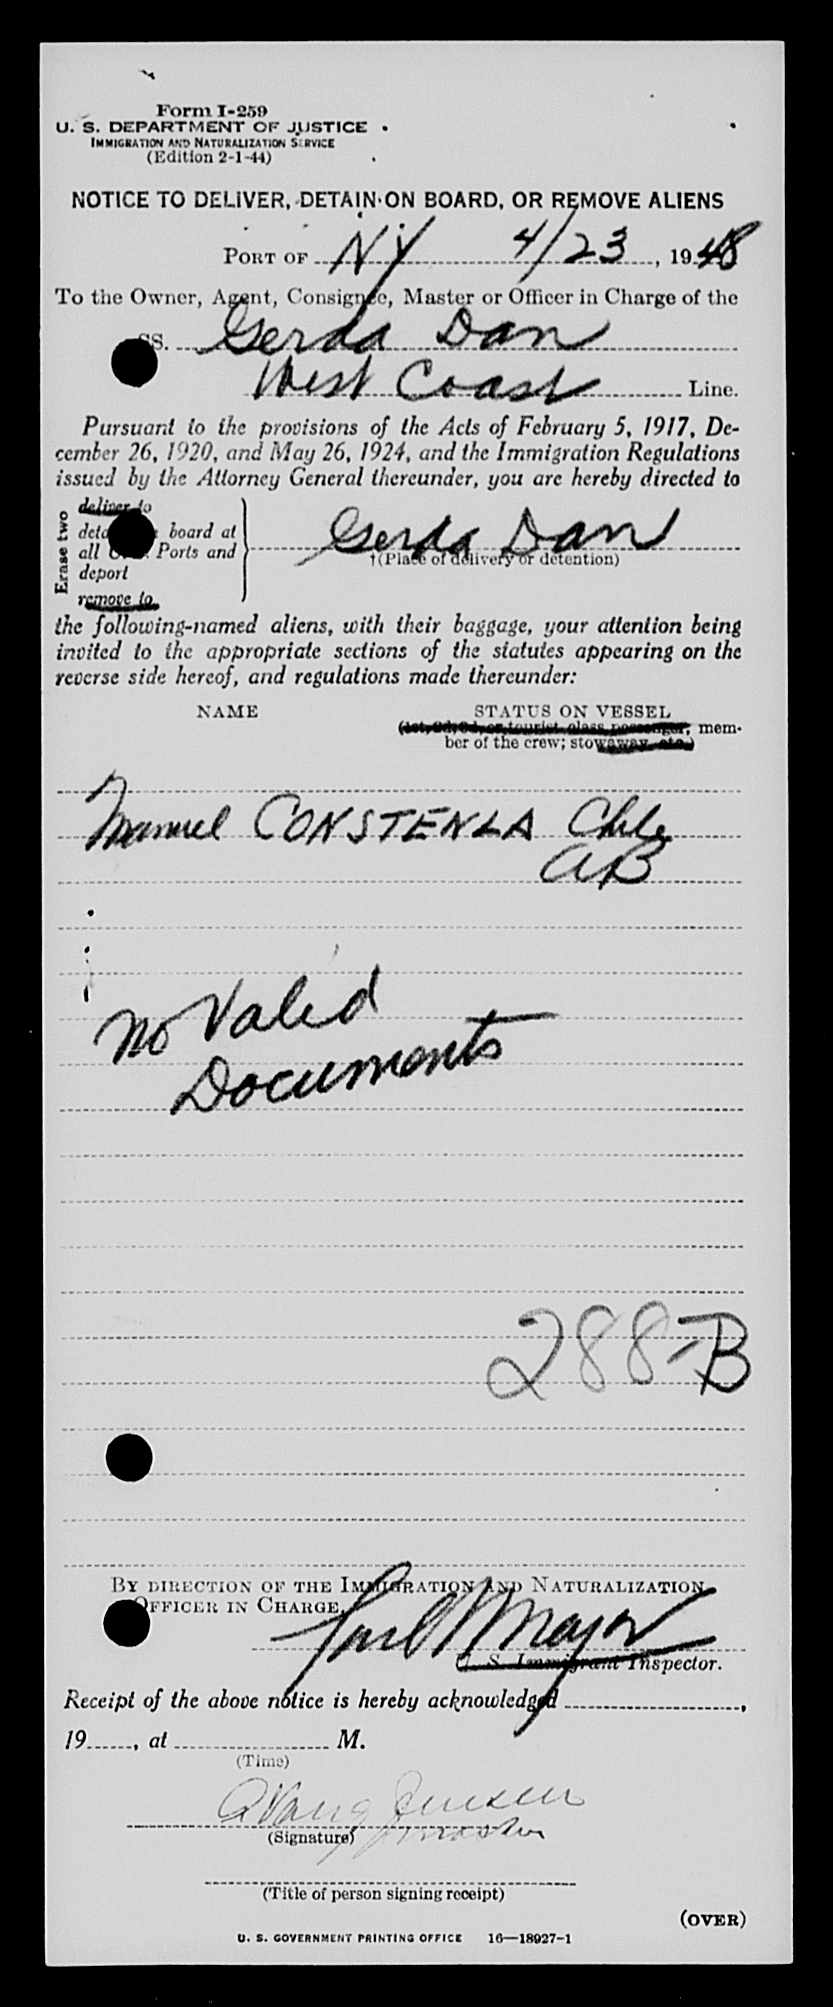 Form I-259
U. S. DEPARTMENT OF JUSTICE
IMMIGRATION AND NATURALIZATION SERVICE
(Edition 2-1-44)
NOTICE TO DELIVER, DETAIN ON BOARD, OR REMOVE ALIENS
PORT OF NY 4/23, 1948
To the Owner, Agent, Consignee, Master or Officer in Charge of the
SS. Gerda Dan
West Coast Line.
Pursuant to the provisions of the Acts of February 5, 1917, De-
cember 26, 1920, and May 26, 1924, and the Immigration Regulations
issued by the Attorney General thereunder, you are hereby directed to
Erase two
deliver to
board at
all Ports and
deport
remove to
Gerda Dan
†(Place of delivery or detention)
the following-named aliens, with their baggage, your attention being
invited to the appropriate sections of the statutes appearing on the
reverse side hereof, and regulations made thereunder:
NAME STATUS ON VESSEL
(1st, 2d, 3d, or tourist class passenger, mem-
ber of the crew; stowaway, etc.)
Manuel CONSTENLA Chile
AB
No Valid
Documents
288-B
BY DIRECTION OF THE IMMIGRATION AND NATURALIZATION
OFFICER IN CHARGE,
U. S. Immigrant Inspector.
Receipt of the above notice is hereby acknowledged ,
19 , at M.
(Time)
Jensen
master
(Signature)
(Title of person signing receipt)
(OVER)
U. S. GOVERNMENT PRINTING OFFICE 16—18927-1